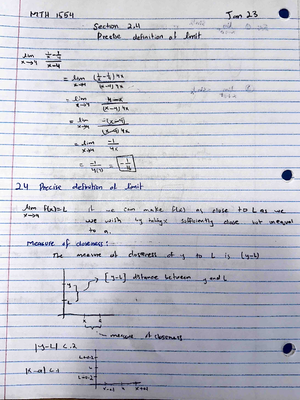 MTH 1554 Jan 23
Section 2.4
Precise definition of limit
lim x→4 (1/x - 1/4)/(x-4)
= lim x→4 (1/x - 1/4)4x / (x-4)4x
= lim x→4 4-x / (x-4)4x
= lim x→4 -(x-4) / (x-4)4x
= lim x→4 -1/4x
= -1/4(4) = -1/16
2.4 Precise definition of limit
lim f(x)=L if we can make f(x) as close to L as we
we wish by taking x sufficiently close but unequal
to a.
Measure of closeness:
The measure of closeness of y to L is |y-L|
|y-L| distance between y and L
y
L
measure of closeness
|y-L| <.2
L